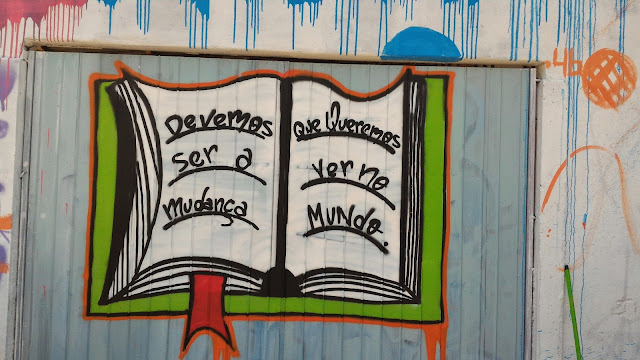 Devemos
ser a
mudança
Que Queremos
ver no
MUNDO.